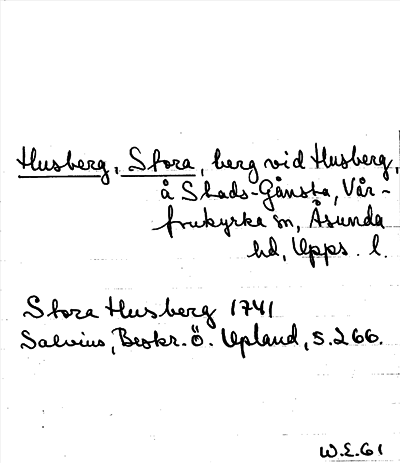 Husberg, Stora, berg vid Husberg,
å Skads-Gånsta, Vår-
frukyrka sn, Åsunda
hd, Upps. l.
Stora Husberg 1741
Salvius, Beskr. ö. Upland, s. 266.
W.E.61